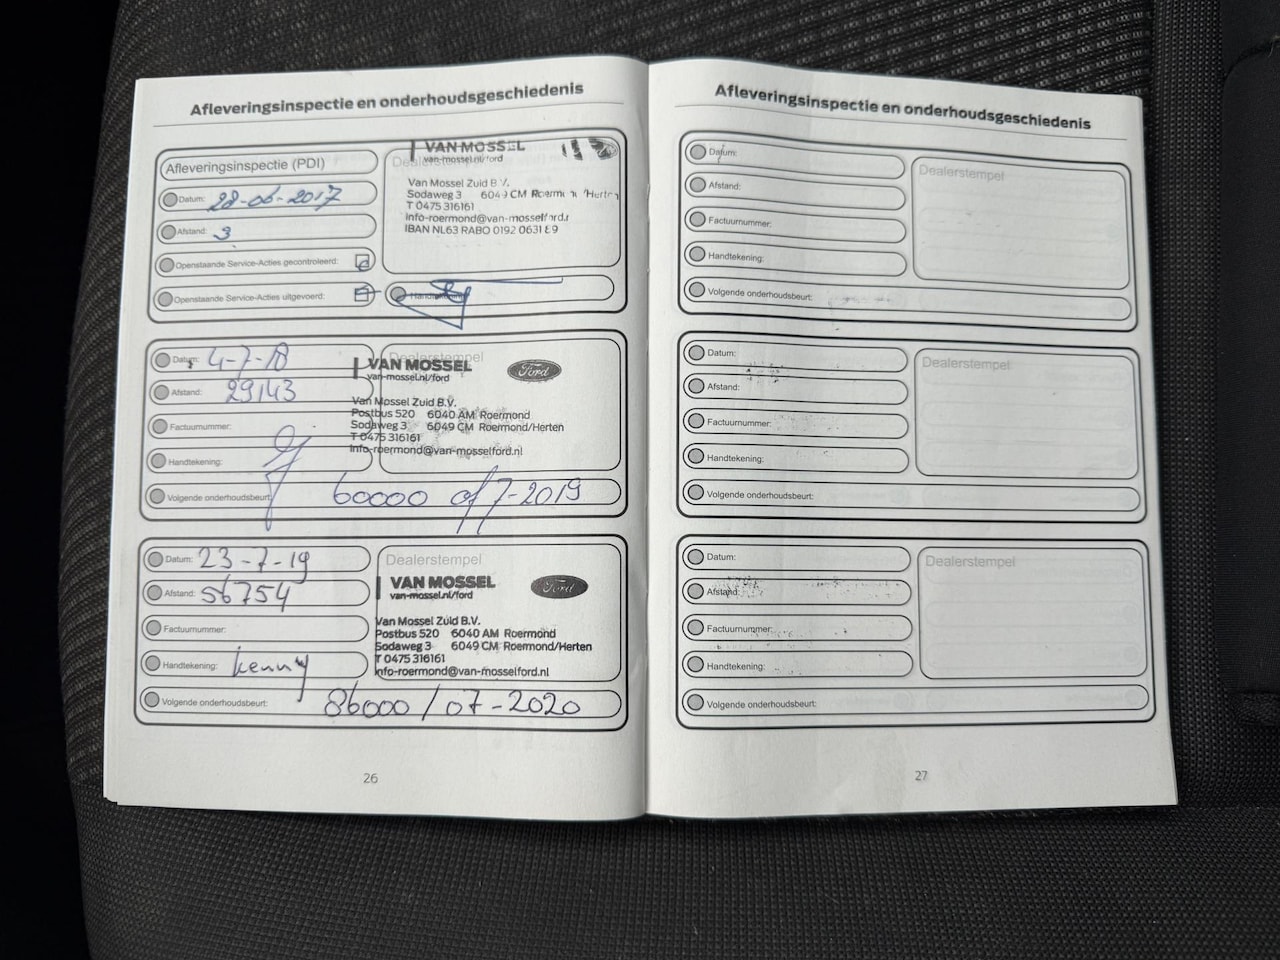 Afleveringsinspectie en onderhoudsgeschiedenis
Afleveringsinspectie (PDI)
Datum: 28-06-2017
Afstand: 3
Openstaande Service-Acties gecontroleerd:
Openstaande Service-Acties uitgevoerd:
VAN MOSSEL
van-mossel.nl/ford
Van Mossel Zuid B.V.
Sodaweg 3 6049 CM Roermond/Herten
T 0475 316161
info-roermond@van-mosselford.n
IBAN NL63 RABO 0192 0631 89
Handtekening:
Datum: 4-7-18
Afstand: 29143
Factuurnummer:
Handtekening:
Dealerstempel
VAN MOSSEL
Ford
van-mossel.nl/ford
Van Mossel Zuid B.V.
Postbus 520 6040 AM Roermond
Sodaweg 3 6049 CM Roermond/Herten
T 0475 316161
info-roermond@van-mosselford.nl
Volgende onderhoudsbeurt: 60000 of 7-2019
Datum: 23-7-19
Afstand: 56754
Factuurnummer:
Handtekening: kenny
Dealerstempel
VAN MOSSEL
Ford
van-mossel.nl/ford
Van Mossel Zuid B.V.
Postbus 520 6040 AM Roermond
Sodaweg 3 6049 CM Roermond/Herten
T 0475 316161
info-roermond@van-mosselford.nl
Volgende onderhoudsbeurt: 86000 / 07-2020
26
Afleveringsinspectie en onderhoudsgeschiedenis
Datum:
Afstand:
Factuurnummer:
Handtekening:
Dealerstempel
Volgende onderhoudsbeurt:
Datum:
Afstand:
Factuurnummer:
Handtekening:
Dealerstempel
Volgende onderhoudsbeurt:
Datum:
Afstand:
Factuurnummer:
Handtekening:
Dealerstempel
Volgende onderhoudsbeurt:
27